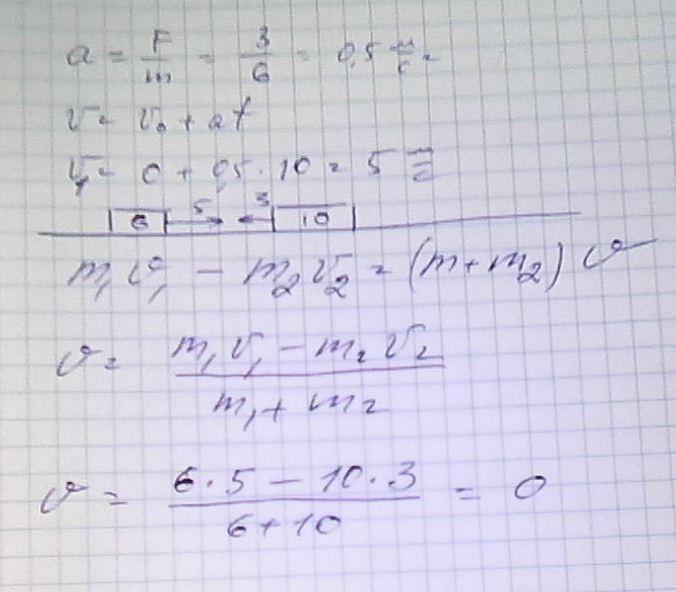 a = F/m = 3/6 = 0,5 м/с²
v = v₀ + at
v₁ = 0 + 0,5 · 10 = 5 м/с
6 5 3 10
m₁v₁ − m₂v₂ = (m + m₂) v
v = (m₁v₁ − m₂v₂)/(m₁ + m₂)
v = (6 · 5 − 10 · 3)/(6 + 10) = 0